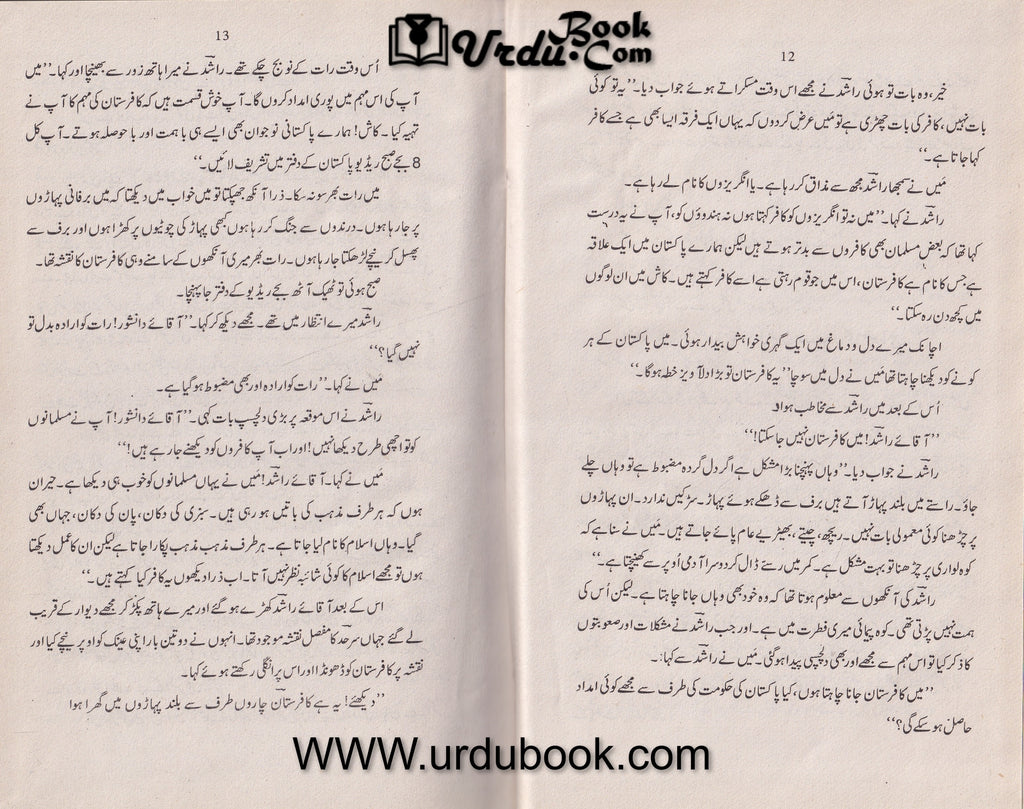 UrduBook.Com
12
خیر، وہ بات تو ہوئی راشد نے مجھے اس وقت مسکراتے ہوئے جواب دیا۔ ”یہ تو کوئی
بات نہیں، کافر کی بات چھڑی ہے تو میں عرض کر دوں کہ یہاں ایک فرقہ ایسا بھی ہے جسے کافر
کہا جاتا ہے۔“
میں نے سمجھا راشد مجھ سے مذاق کر رہا ہے۔ یا انگریزوں کا نام لے رہا ہے۔
راشد نے کہا۔ ”میں نہ تو انگریزوں کو کافر کہتا ہوں نہ ہندوؤں کو، آپ نے یہ درست
کہا تھا کہ بعض مسلمان بھی کافروں سے بدتر ہوتے ہیں لیکن ہمارے پاکستان میں ایک علاقہ
ہے جس کا نام ہے کافرستان، اس میں جو قوم رہتی ہے اسے کافر کہتے ہیں۔ کاش میں ان لوگوں
میں کچھ دن رہ سکتا۔“
اچانک میرے دل و دماغ میں ایک گہری خواہش بیدار ہوئی۔ میں پاکستان کے ہر
کونے کو دیکھنا چاہتا تھا میں نے دل میں سوچا ”یہ کافرستان تو بڑا دلآویز خطہ ہوگا۔“
اُس کے بعد میں راشد سے مخاطب ہوا۔
”آقائے راشد! میں کافرستان نہیں جا سکتا!“
راشد نے جواب دیا۔ ”وہاں پہنچنا بڑا مشکل ہے اگر دل گردہ مضبوط ہے تو وہاں چلے
جاؤ۔ راستے میں بلند پہاڑ آتے ہیں برف سے ڈھکے ہوئے پہاڑ۔ سڑکیں ندارد۔ ان پہاڑوں
پر چڑھنا کوئی معمولی بات نہیں۔ ریچھ، چیتے، بھیڑیے عام پائے جاتے ہیں۔ میں نے سنا ہے کہ
کوہ لواری پر چڑھنا تو بہت مشکل ہے۔ کمر میں رسے ڈال کر دوسرا آدمی اُوپر سے کھینچتا ہے۔“
راشد کی آنکھوں سے معلوم ہوتا تھا کہ وہ خود بھی وہاں جانا چاہتا ہے۔ لیکن اُس کی
ہمت نہیں پڑتی تھی۔ کوہ پیمائی میری فطرت میں ہے۔ اور جب راشد نے مشکلات اور صعوبتوں
کا ذکر کیا تو اس مہم سے مجھے اور بھی دلچسپی پیدا ہوگئی۔ میں نے راشد سے کہا:۔
”میں کافرستان جانا چاہتا ہوں، کیا پاکستان کی حکومت کی طرف سے مجھے کوئی امداد
حاصل ہو سکے گی؟“
13
اُس وقت رات کے نو بج چکے تھے۔ راشد نے میرا ہاتھ زور سے بھینچا اور کہا۔ ”میں
آپ کی اس مہم میں پوری امداد کروں گا۔ آپ خوش قسمت ہیں کہ کافرستان کی مہم کا آپ نے
تہیہ کیا۔ کاش! ہمارے پاکستانی نوجوان بھی ایسے ہی باہمت اور باحوصلہ ہوتے۔ آپ کل
8 بجے صبح ریڈیو پاکستان کے دفتر میں تشریف لائیں۔“
میں رات بھر سو نہ سکا۔ ذرا آنکھ جھپکتا تو میں خواب میں دیکھتا کہ میں برفانی پہاڑوں
پر جا رہا ہوں۔ درندوں سے جنگ کر رہا ہوں کبھی پہاڑ کی چوٹیوں پر کھڑا ہوں اور برف سے
پھسل کر نیچے لڑھکتا جا رہا ہوں۔ رات بھر میری آنکھوں کے سامنے وہی کافرستان کا نقشہ تھا۔
صبح ہوئی تو ٹھیک آٹھ بجے ریڈیو کے دفتر جا پہنچا۔
راشد میرے انتظار میں تھے۔ مجھے دیکھ کر کہا۔ ”آقائے دانشور! رات کو ارادہ بدل تو
نہیں گیا؟“
میں نے کہا۔ ”رات کو ارادہ اور بھی مضبوط ہو گیا ہے۔
راشد نے اس موقعہ پر بڑی دلچسپ بات کہی۔ ”آقائے دانشور! آپ نے مسلمانوں
کو تو اچھی طرح دیکھا نہیں! اور اب آپ کافروں کو دیکھنے جا رہے ہیں!“
میں نے کہا۔ آقائے راشد! میں نے یہاں مسلمانوں کو خوب ہی دیکھا ہے۔ حیران
ہوں کہ ہر طرف مذہب کی باتیں ہو رہی ہیں۔ سبزی کی دکان، پان کی دکان، جہاں بھی
گیا۔ وہاں اسلام کا نام لیا جاتا ہے۔ ہر طرف مذہب مذہب پکارا جاتا ہے لیکن ان کا عمل دیکھتا
ہوں تو مجھے اسلام کا کوئی شائبہ نظر نہیں آتا۔ اب ذرا دیکھوں یہ کافر کیا کہتے ہیں۔“
اس کے بعد آقائے راشد کھڑے ہو گئے اور میرے ہاتھ پکڑ کر مجھے دیوار کے قریب
لے گئے جہاں سرحد کا مفصل نقشہ موجود تھا۔ انہوں نے دو تین بار اپنی عینک کو اوپر نیچے کیا اور
نقشہ پر کافرستان کو ڈھونڈا اور اس پر انگلی رکھتے ہوئے کہا۔
”دیکھئے! یہ ہے کافرستان چاروں طرف سے بلند پہاڑوں میں گھرا ہوا
WWW.urdubook.com